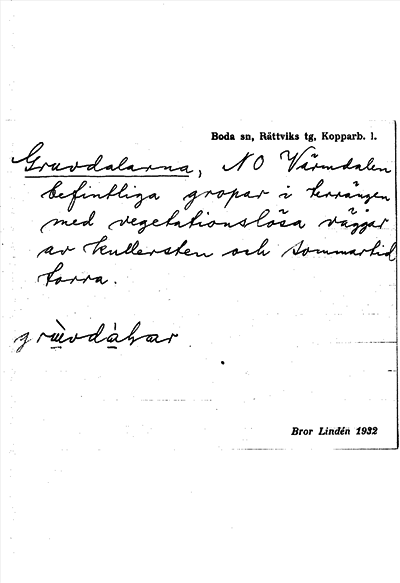 Boda sn, Rättviks tg, Kopparb. l.
Gruvdalarna, NO Värmdalen
befintliga gropar i terrängen
med vegetationslösa väggar
av kullersten och sommartid
torra.
Bror Lindén 1932